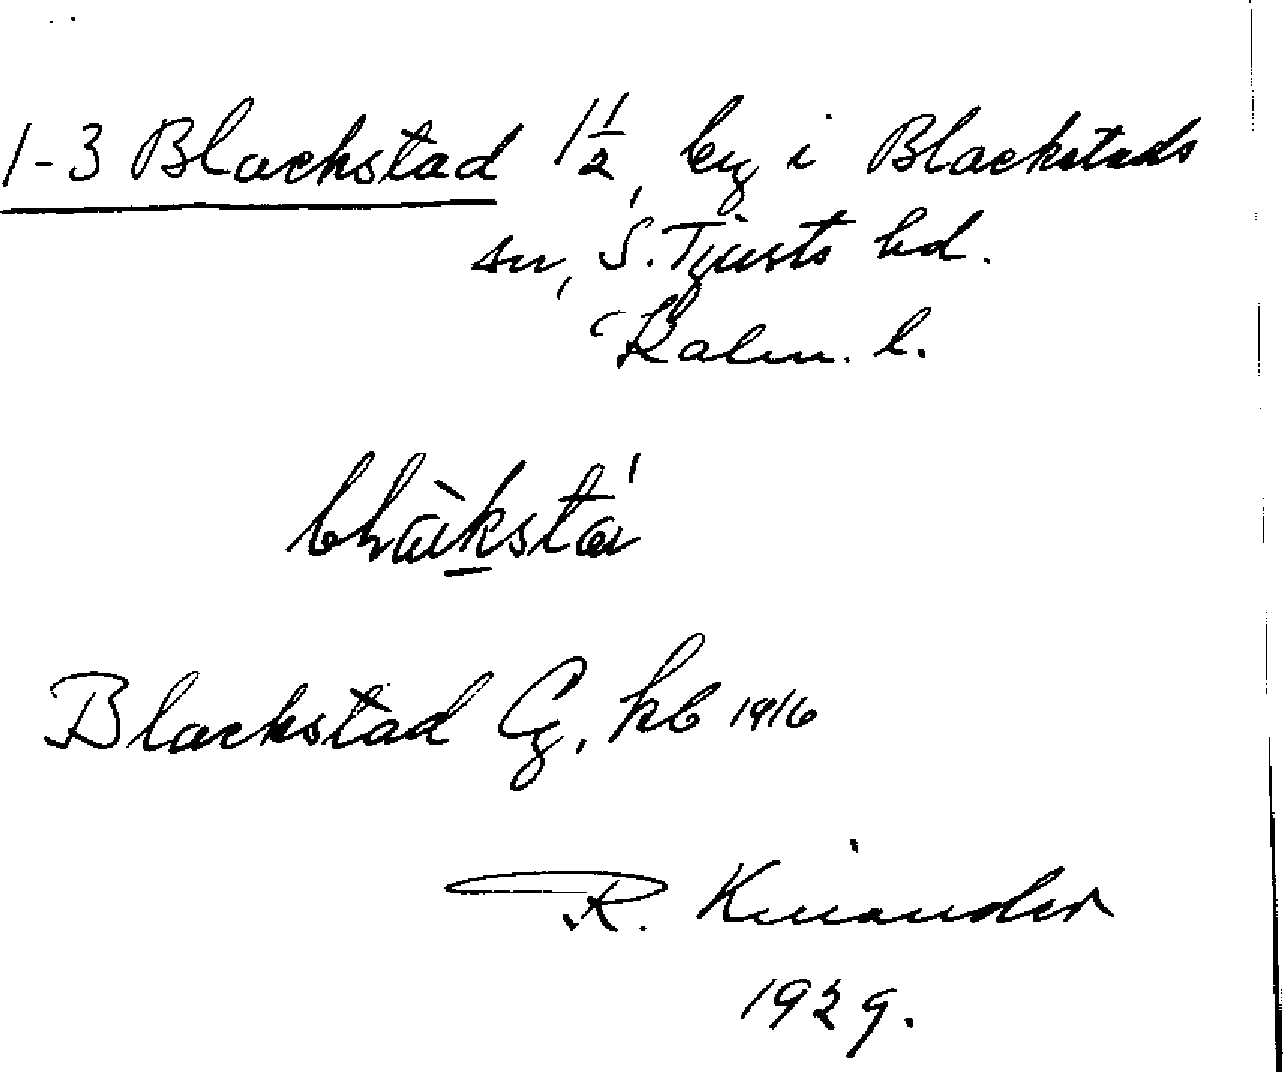 1-3 Blackstad 1 1/2, by i Blackstads
sn, S. Tjusts hd.
Kalm. l.
Blackstad By, kb 1916
R. Kinander
1929.